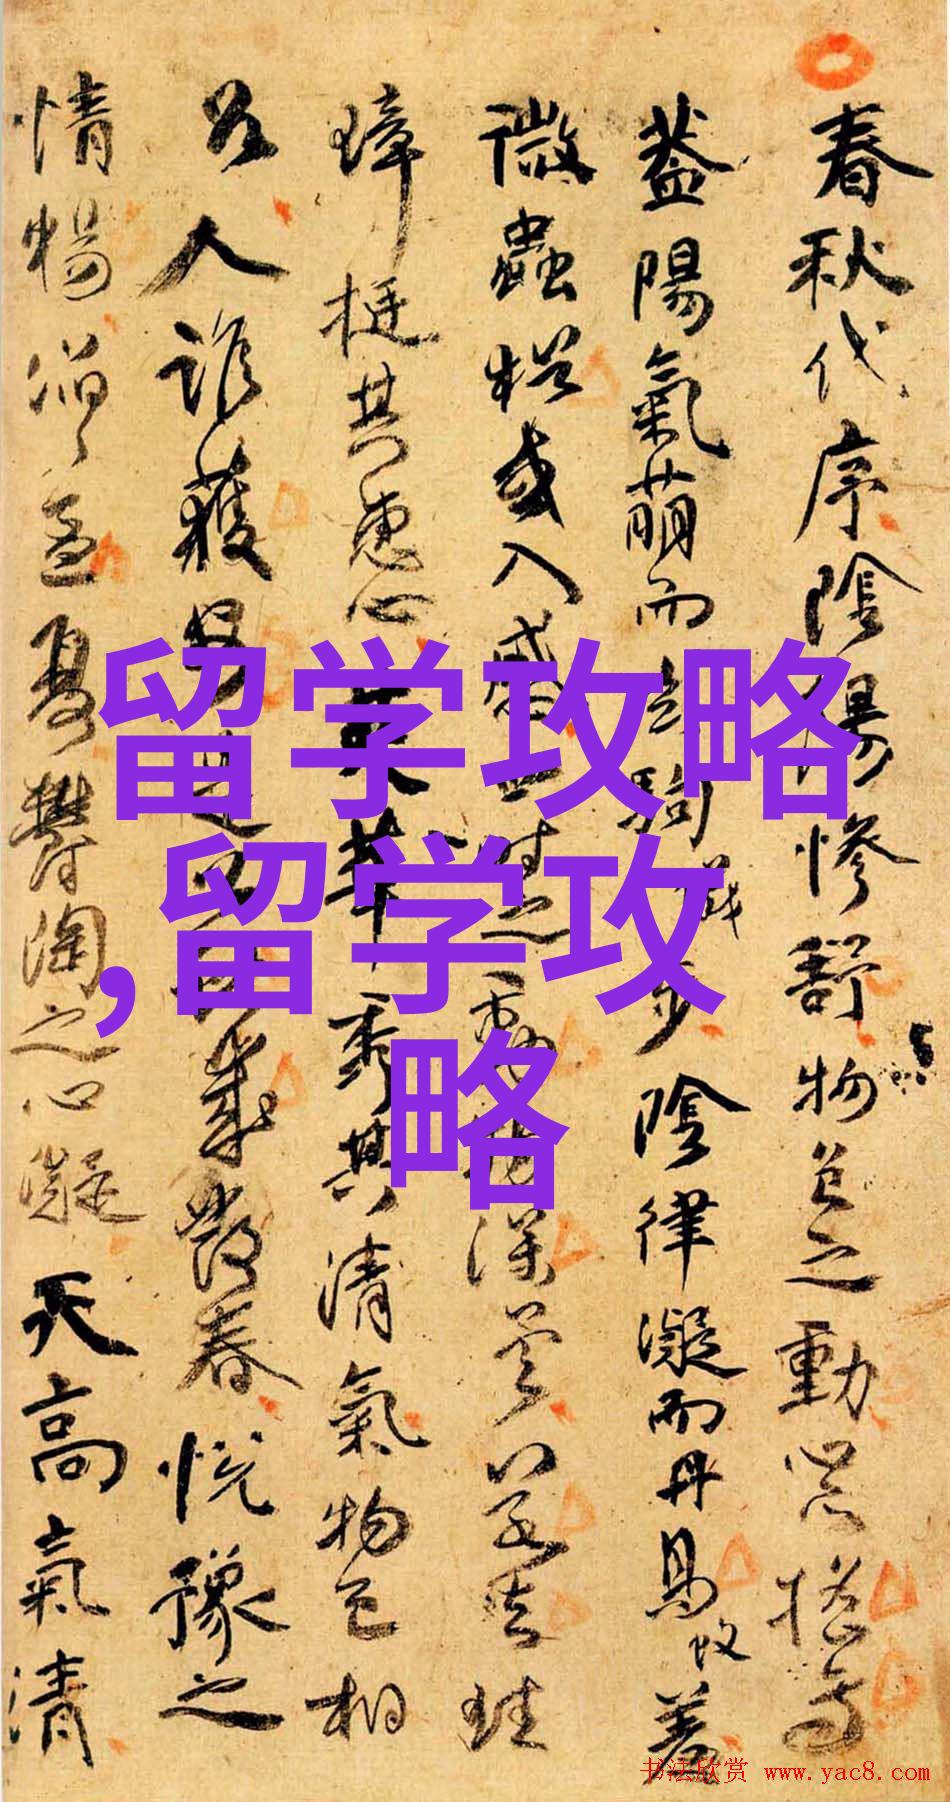 春秋代序陰陽慘舒物色之動心亦搖焉
蓋陽氣萌而玄駒步陰律凝而丹鳥羞
微蟲猶或入感四時之動物深矣若夫珪
璋挺其惠心英華秀其清氣物色相
召人誰獲安是以歲發春悅豫之
情暢滔滔孟夏鬱陶之心凝天高氣清
留学攻略
,留学攻
略
书法欣赏 www.yac8.com